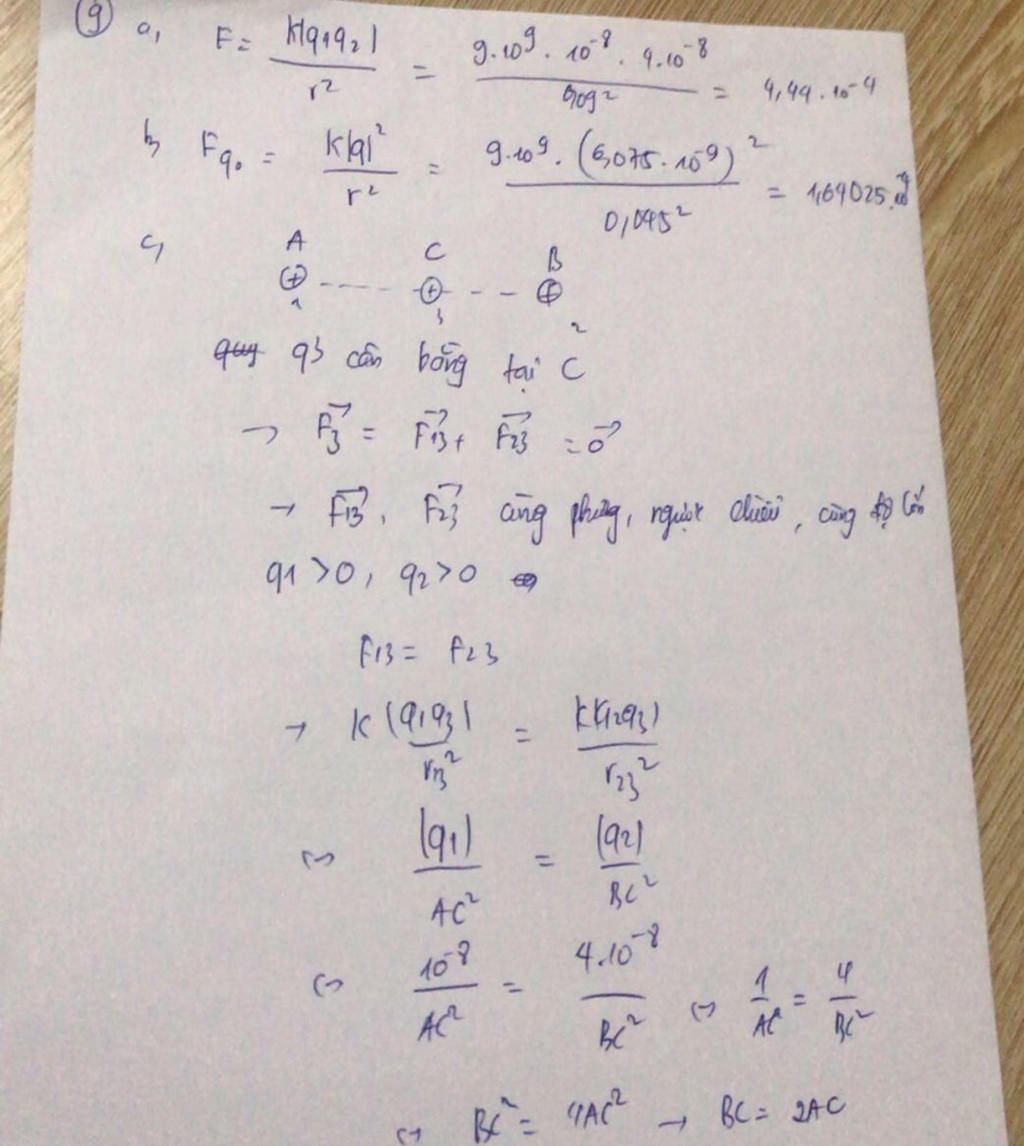 ⑨ a, F = k|q1q2| / r² = 9.10⁹ . 10⁻⁸ . 4.10⁻⁸ / 0,09² = 4,44 . 10⁻⁴
b, Fq₀ = k|q|² / r² = 9.10⁹ . (6,075 . 10⁻⁹)² / 0,045² = 1,64025.
c,
A C B
⊕ ---- ⊕ --- ⊕
1 3 2
q3 cân bằng tại C
→ F₃⃗ = F13⃗ + F23⃗ = 0⃗
→ F13⃗, F23⃗ cùng phương, ngược chiều, cùng độ lớn
q1 > 0, q2 > 0
F13 = F23
→ k|q1q3| / r13² = k|q2q3| / r23²
↔ |q1| / AC² = |q2| / BC²
↔ 10⁻⁸ / AC² = 4.10⁻⁸ / BC² ↔ 1 / AC² = 4 / BC²
↔ BC² = 4AC² → BC = 2AC